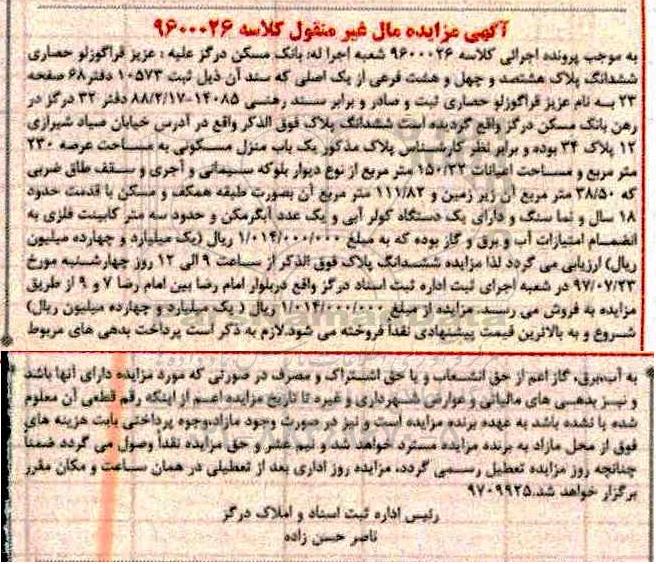 آگهی مزایده مال غیر منقول کلاسه ۹۶۰۰۰۲۶
به موجب پرونده اجرائی کلاسه ۹۶۰۰۰۲۶ شعبه اجرا له: بانک مسکن درگز علیه : عزیز قراگوزلو حصاری
ششدانگ پلاک هشتصد و چهل و هشت فرعی از یک اصلی که سند آن ذیل ثبت ۱۰۵۷۳ دفتر ۶۸ صفحه
۲۳ به نام عزیز قراگوزلو حصاری ثبت و صادر و برابر سند رهنی ۱۴۰۸۵-۸۸/۲/۱۷ دفتر ۳۲ درگز در
رهن بانک مسکن درگز واقع گردیده است ششدانگ پلاک فوق الذکر واقع در آدرس خیابان صیاد شیرازی
۱۲ پلاک ۳۴ بوده و برابر نظر کارشناس پلاک مذکور یک باب منزل مسکونی به مساحت عرصه ۲۳۰
متر مربع و مساحت اعیانات ۱۵۰/۳۲ متر مربع از نوع دیوار بلوکه سیمانی و آجری و سقف طاق ضربی
که ۳۸/۵۰ متر مربع آن زیر زمین و ۱۱۱/۸۲ متر مربع آن بصورت طبقه همکف و مسکن با قدمت حدود
۱۸ سال و نما سنگ و دارای یک دستگاه کولر آبی و یک عدد آبگرمکن و حدود سه متر کابینت فلزی به
انضمام امتیازات آب و برق و گاز بوده که به مبلغ ۱/۰۱۴/۰۰۰/۰۰۰ ریال (یک میلیارد و چهارده میلیون
ریال) ارزیابی می گردد لذا مزایده ششدانگ پلاک فوق الذکر از ساعت ۹ الی ۱۲ روز چهارشنبه مورخ
۹۷/۰۷/۲۳ در شعبه اجرای ثبت اداره ثبت اسناد درگز واقع دربلوار امام رضا بین امام رضا ۷ و ۹ از طریق
مزایده به فروش می رسد. مزایده از مبلغ ۱/۰۱۴/۰۰۰/۰۰۰ ریال ( یک میلیارد و چهارده میلیون ریال)
شروع و به بالاترین قیمت پیشنهادی نقدا فروخته می شود.لازم به ذکر است پرداخت بدهی های مربوط
به آب،برق، گاز اعم از حق انشعاب و یا حق اشتراک و مصرف در صورتی که مورد مزایده دارای آنها باشد
و نیز بدهی های مالیاتی و عوارض شهرداری و غیره تا تاریخ مزایده اعم از اینکه رقم قطعی آن معلوم
شده یا نشده باشد به عهده برنده مزایده است و نیز در صورت وجود مازاد،وجوه پرداختی بابت هزینه های
فوق از محل مازاد به برنده مزایده مسترد خواهد شد و نیم عشر و حق مزایده نقدا وصول می گردد ضمنا
چنانچه روز مزایده تعطیل رسمی گردد، مزایده روز اداری بعد از تعطیلی در همان ساعت و مکان مقرر
برگزار خواهد شد.۹۷۰۹۹۲۵
رئیس اداره ثبت اسناد و املاک درگز
ناصر حسن زاده